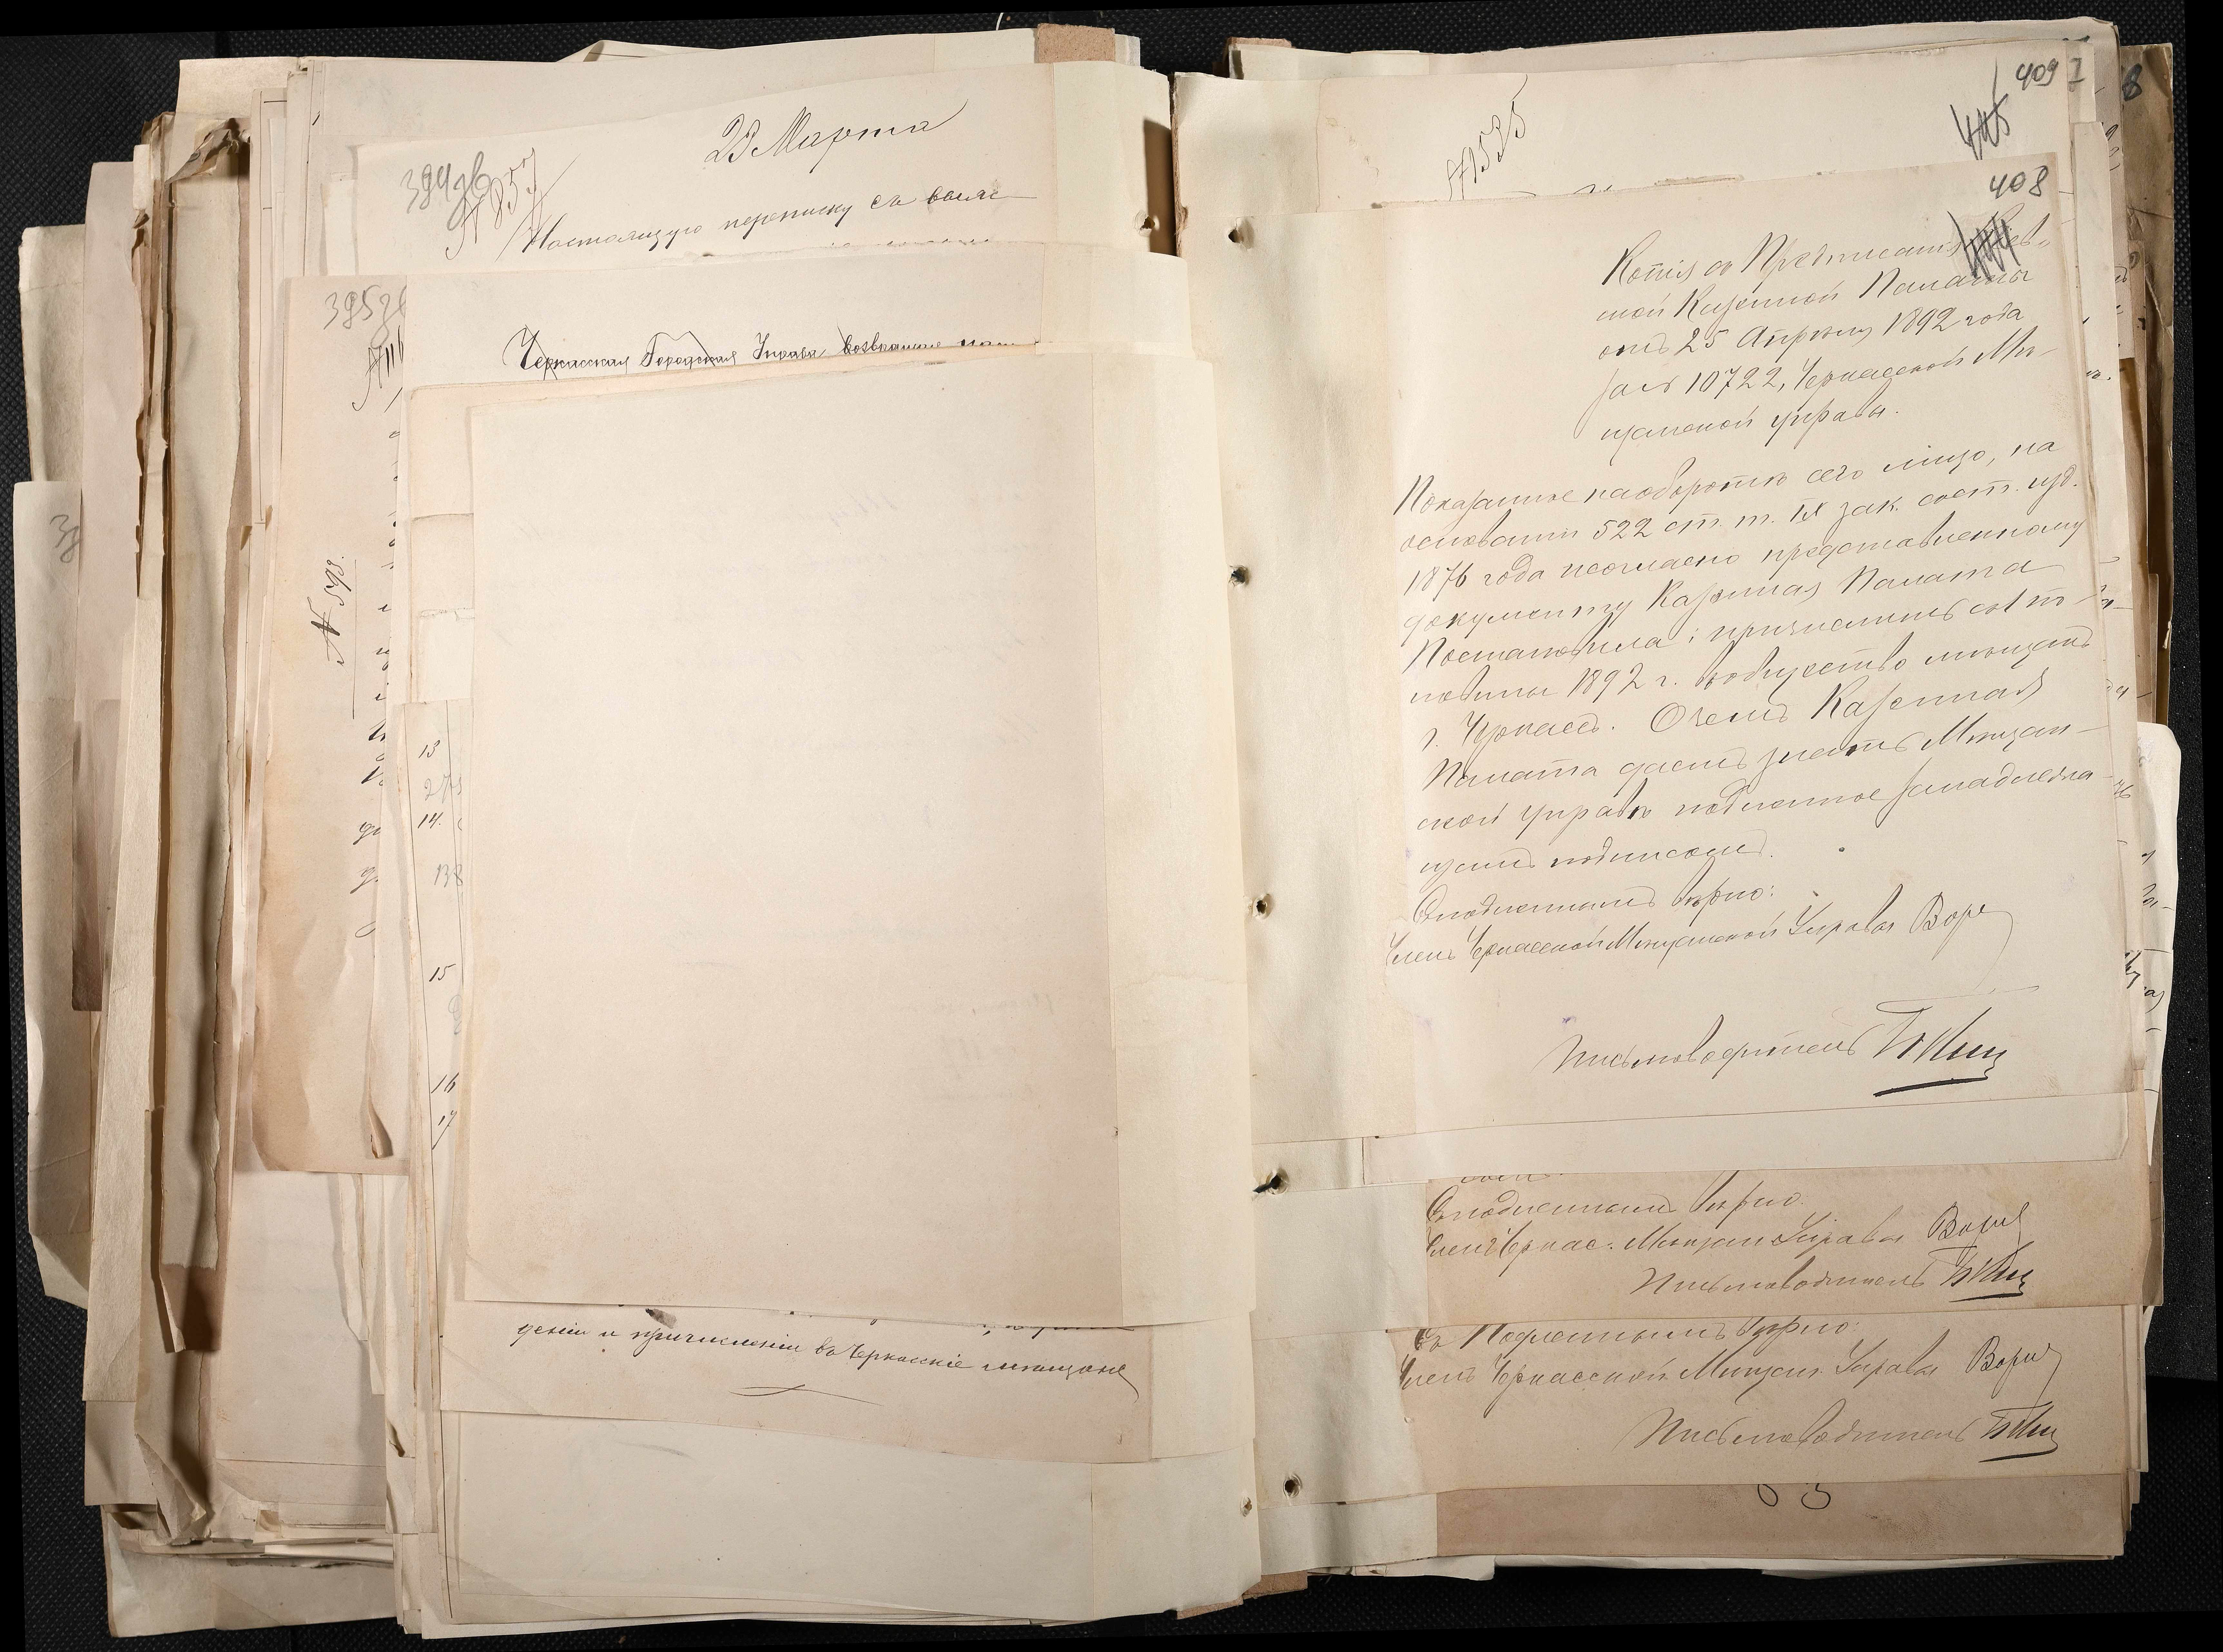 394об
№ 857
23 Марта
Настоящую переписку съ
395об
Черкасская Городская Управа возвращая
№ 598.
13
14.
138
15
16
17
дѣніи и причисленіи въ Черкасскіе мѣщане
409
405
№ 1535
408
404
Копія съ Предписанія Кіев-
ской Казенной Палаты
отъ 25 Апрѣля 1892 года
за № 10722, Черкасской Мѣ-
щанской управѣ.
Показанное наоборотѣ сего лицо, на
основаніи 522 ст. т. IX зак. сост. изд.
1876 года и согласно представленному
документу Казенная Палата
Постановила: причислить съ 1й по-
ловины 1892 г. въ общество мѣщанъ
г. Черкассъ. О чемъ Казенная
Палата даетъ знать Мѣщан-
ской управѣ подлинное за надлежа-
щимъ подписомъ.
Съ подлиннымъ вѣрно:
Членъ Черкасской Мѣщанской Управы
Письмоводитель
Съ подлиннымъ вѣрно.
Членъ Черкас. Мѣщан. Управы
Письмоводитель
Съ Подлиннымъ вѣрно:
Членъ Черкасской Мѣщан. Управы
Письмоводитель